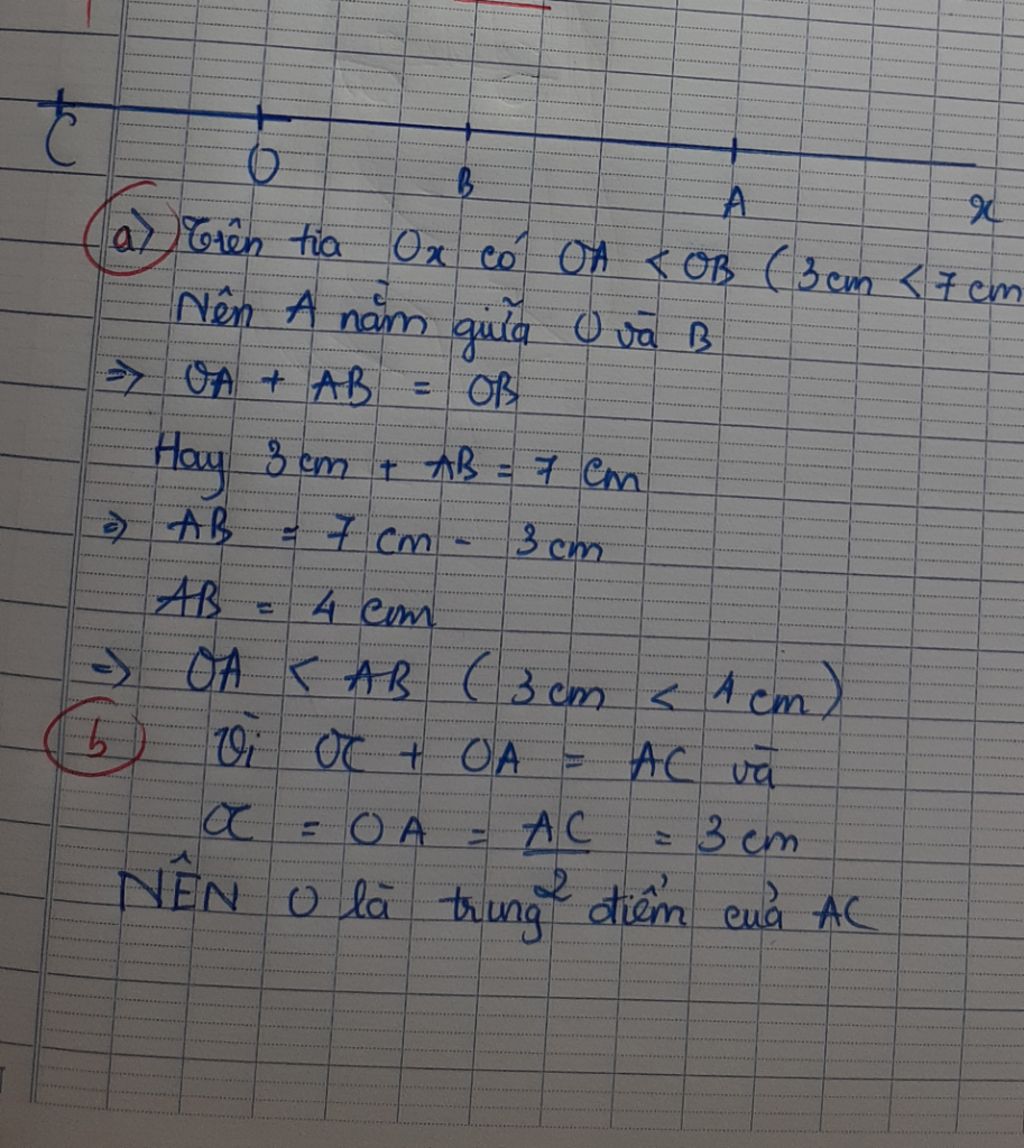 C O B A x
a) Trên tia Ox có OA < OB ( 3 cm < 7 cm
Nên A nằm giữa O và B
=> OA + AB = OB
Hay 3 cm + AB = 7 cm
=> AB = 7 cm - 3 cm
AB = 4 cm
=> OA < AB ( 3 cm < 4 cm )
b Vì OC + OA = AC và
OC = OA = AC/2 = 3 cm
NÊN O là trung điểm của AC